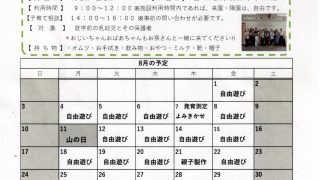 【 利用時間 】 9:00~12:00※施設利用時間内であれば、来園・降園は、自由です。
【子育て相談】 14:00~16:00※事前の問い合わせが必要です。
【 対 象 】 就学前の乳幼児とその保護者
＊おじいちゃんおばあちゃんもお孫さんと一緒に来てください!!
【 持 ち 物 】 ・オムツ・お手拭き・飲み物・おやつ・ミルク・靴・帽子
8月の予定
日 月 火 水 木 金 土
1 2
自由遊び
3 4 5 6 7 8 9
自由遊び 自由遊び 自由遊び 発育測定 よみきかせ 自由遊び
10 11 12 13 14 15 16
山の日 自由遊び 自由遊び 自由遊び 自由遊び
17 18 19 20 21 22 23
自由遊び 自由遊び 自由遊び 親子製作 自由遊び
24 25 26 27 28 29 30